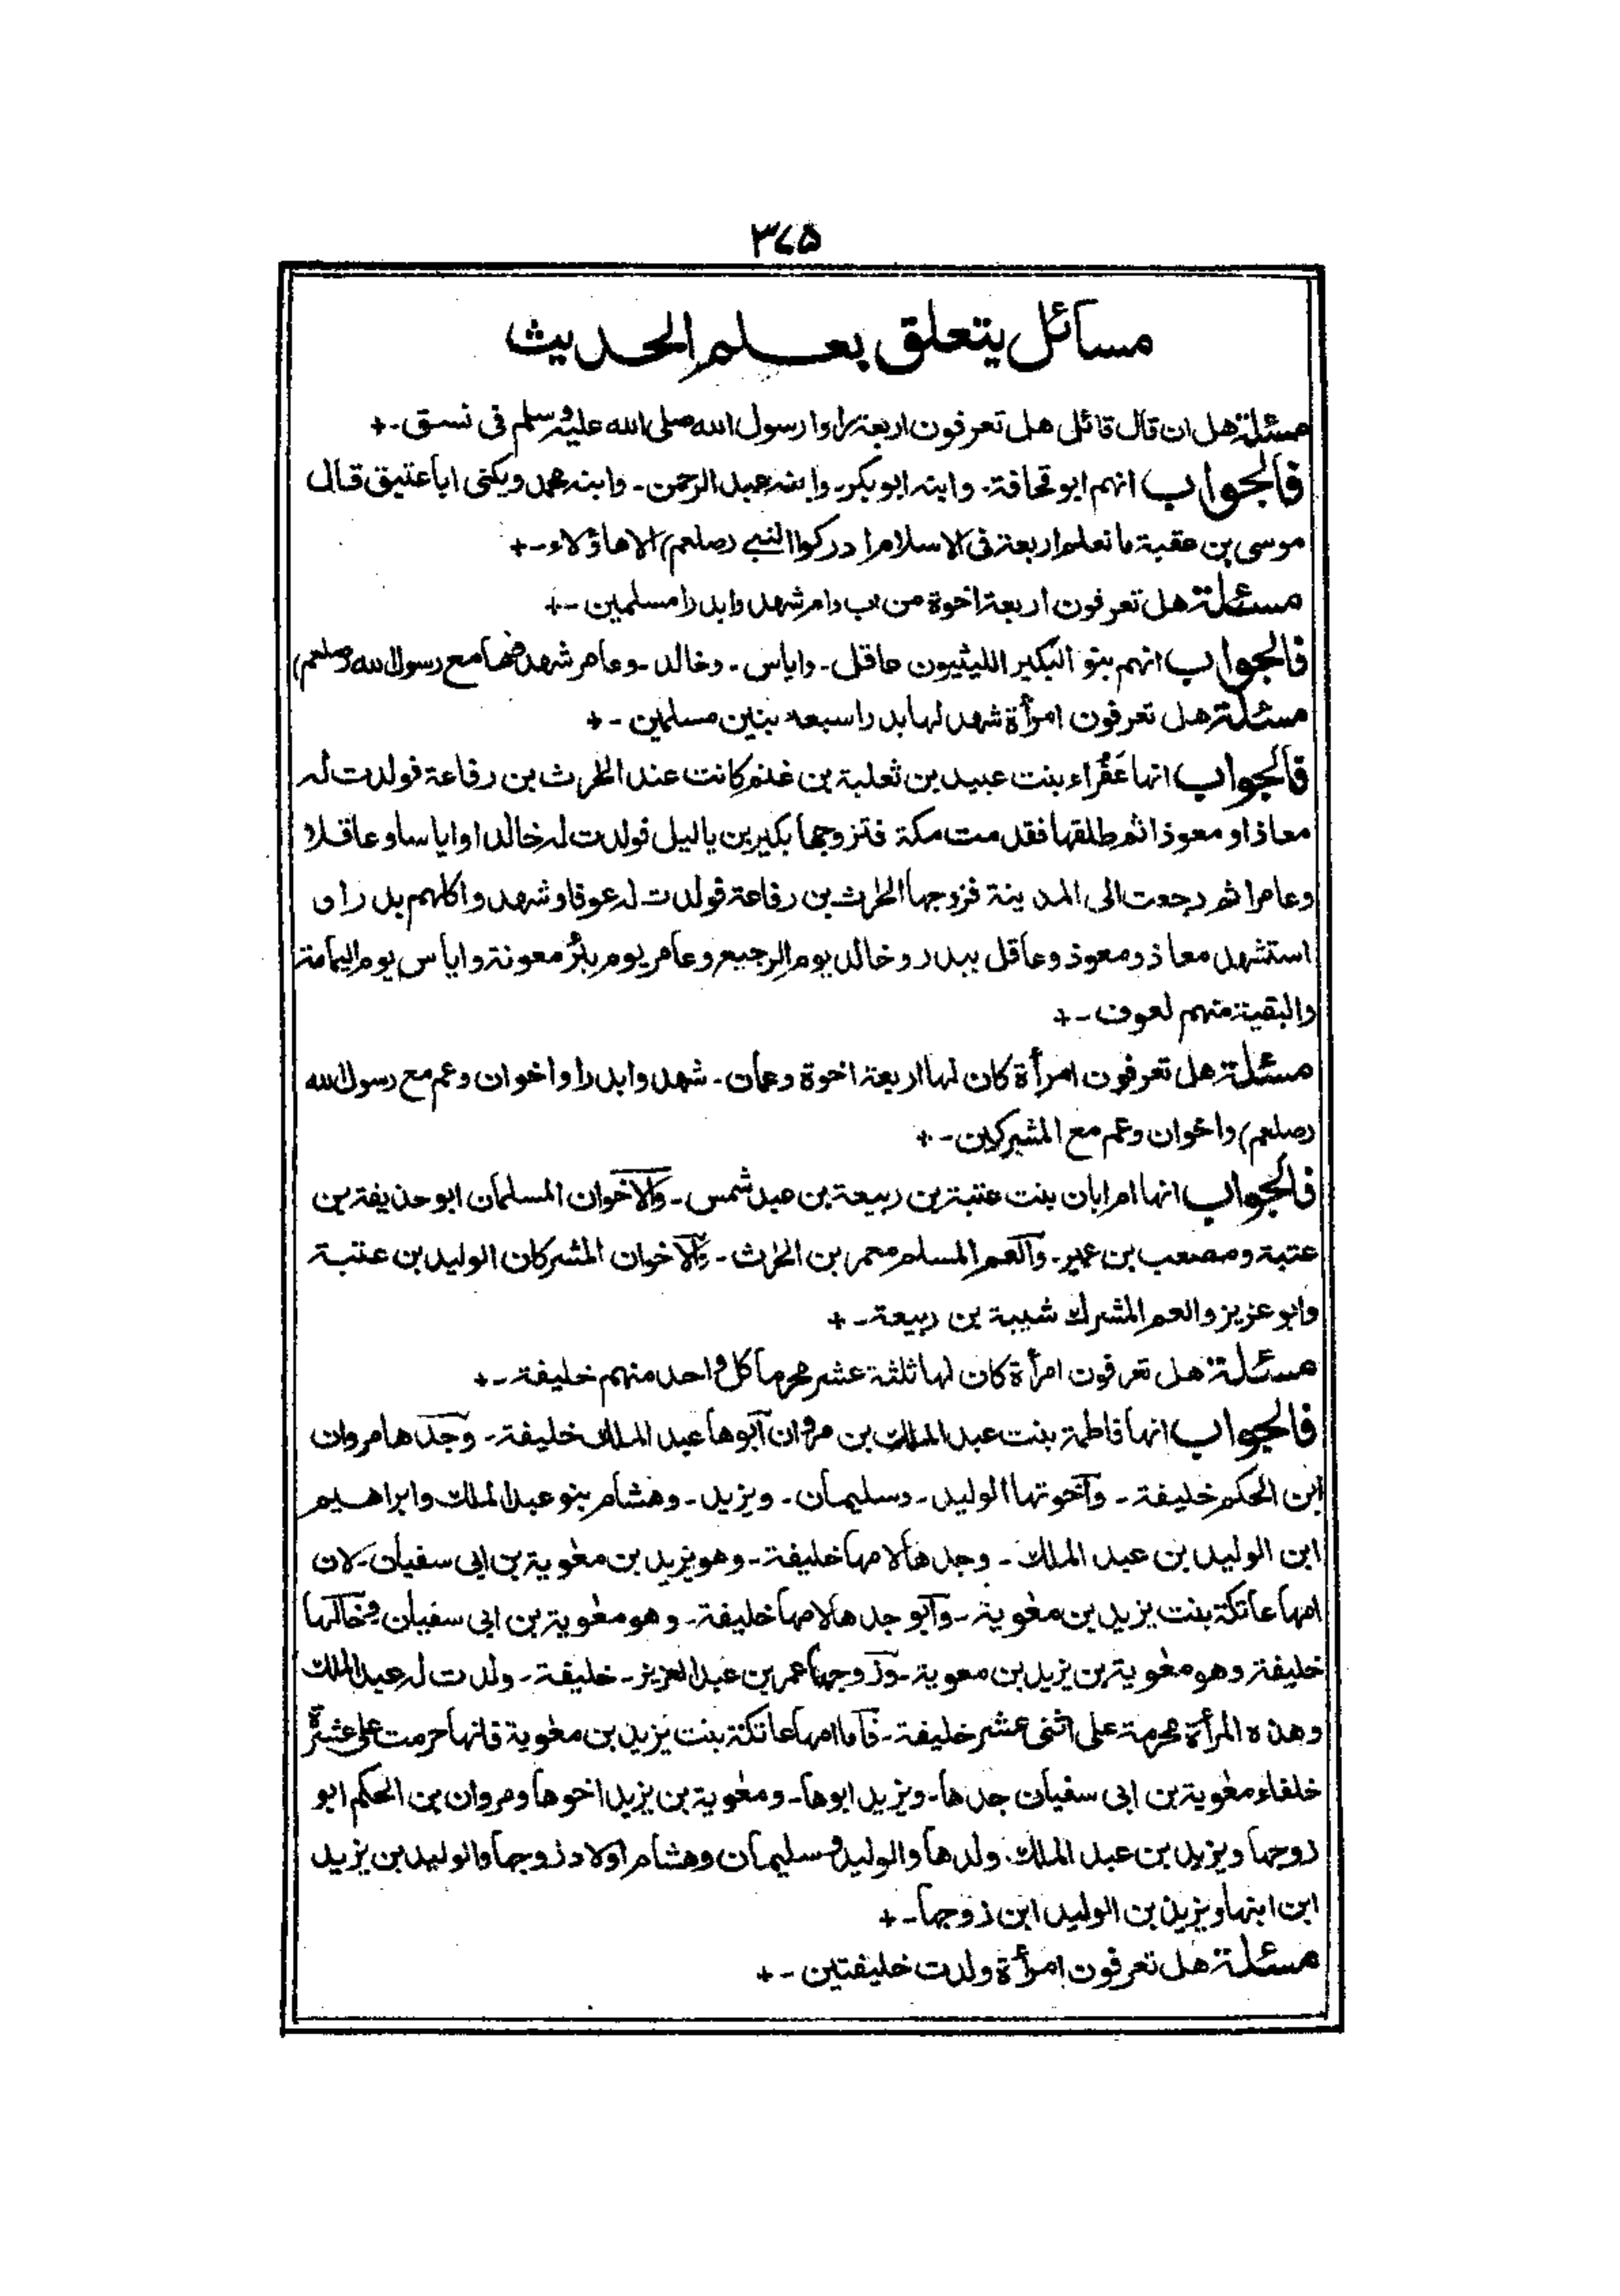 ٣٧٥
مسائل يتعلق بعلم الحديث
مسئلة هل ان قال قائل هل تعرفون اربعة راوا رسول الله صلى الله عليه وسلم فى نسق -+
فالجواب انهم ابو قحافة - وابنه ابو بكر - وابنه عبد الرحمن - وابنه محمد ويكنى ابا عتيق قال
موسى بن عقبة ما نعلم اربعة فى الاسلام ادركوا النبى (صلعم) الا هاؤلاء -+
مسئلة هل تعرفون اربعة اخوة من اب وام شهدوا بدرا مسلمين -+
فالجواب انهم بنو البكير الليثيون عاقل - واياس - وخالد - وعامر شهدوها مع رسول الله (صلعم)
مسئلة هل تعرفون امرأة شهد لها بدرا سبعة بنين مسلمين -+
فالجواب انها عَفْراء بنت عبيد بن ثعلبة بن غنم كانت عند الحٰرث بن رفاعة فولدت له
معاذا ومعوذا ثم طلقها فقدمت مكة فتزوجها بكير بن ياليل فولدت له خالدا واياسا وعاقلا
وعامرا ثم رجعت الى المدينة فزوجها الحٰرث بن رفاعة فولدت له عوفا وشهدوا كلهم بدرا و
استشهد معاذ ومعوذ وعاقل ببدر وخالد يوم الرجيع وعامر يوم بئر معونة واياس يوم اليمامة
والبقية منهم لعوف -+
مسئلة هل تعرفون امرأة كان لها اربعة اخوة وعمان - شهدوا بدرا واخوان وعم مع رسول الله
(صلعم) واخوان وعم مع المشركين -+
فالجواب انها ام ابان بنت عتبة بن ربيعة بن عبد شمس - والاخوان المسلمان ابو حذيفة بن
عتبة ومصعب بن عمير - والعم المسلم معمر بن الحٰرث - والاخوان المشركان الوليد بن عتبة
وابو عزيز والعم المشرك شيبة بن ربيعة -+
مسئلة هل تعرفون امرأة كان لها ثلثة عشر محرما كل واحد منهم خليفة -+
فالجواب انها فاطمة بنت عبد الملك بن مروان ابوها عبد الملك خليفة - وجدها مروان
ابن الحكم خليفة - واخوتها الوليد - وسليمان - ويزيد - وهشام بنو عبد الملك وابراهيم
ابن الوليد بن عبد الملك - وجدها لامها خليفة - وهو يزيد بن معٰوية بن ابى سفيان - لان
امها عاتكة بنت يزيد بن معٰوية - وابو جدها لامها خليفة - وهو معٰوية بن ابى سفيان وخالها
خليفة وهو معٰوية بن يزيد بن معوية - وزوجها عمر بن عبد العزيز - خليفة - ولدت له عبد الملك
وهذه المرأة محرمة على اثنى عشر خليفة - فاما امها عاتكة بنت يزيد بن معٰوية فانها حرمت على عشرة
خلفاء معٰوية بن ابى سفيان جدها - ويزيد ابوها - ومعٰوية بن يزيد اخوها ومروان بن الحكم ابو
زوجها ويزيد بن عبد الملك ولدها والوليد وسليمان وهشام اولاد زوجها والوليد بن يزيد
ابن ابنها ويزيد بن الوليد ابن زوجها -+
مسئلة هل تعرفون امرأة ولدت خليفتين -+